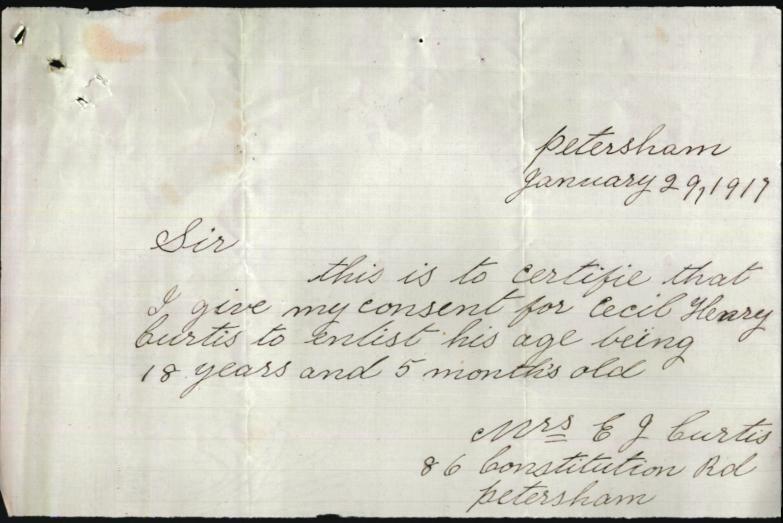 Petersham
January 29, 1917
Sir
this is to certifie that
I give my consent for Cecil Henry
Curtis to enlist his age being
18 years and 5 months old
Mrs E J Curtis
86 Constitution Rd
Petersham